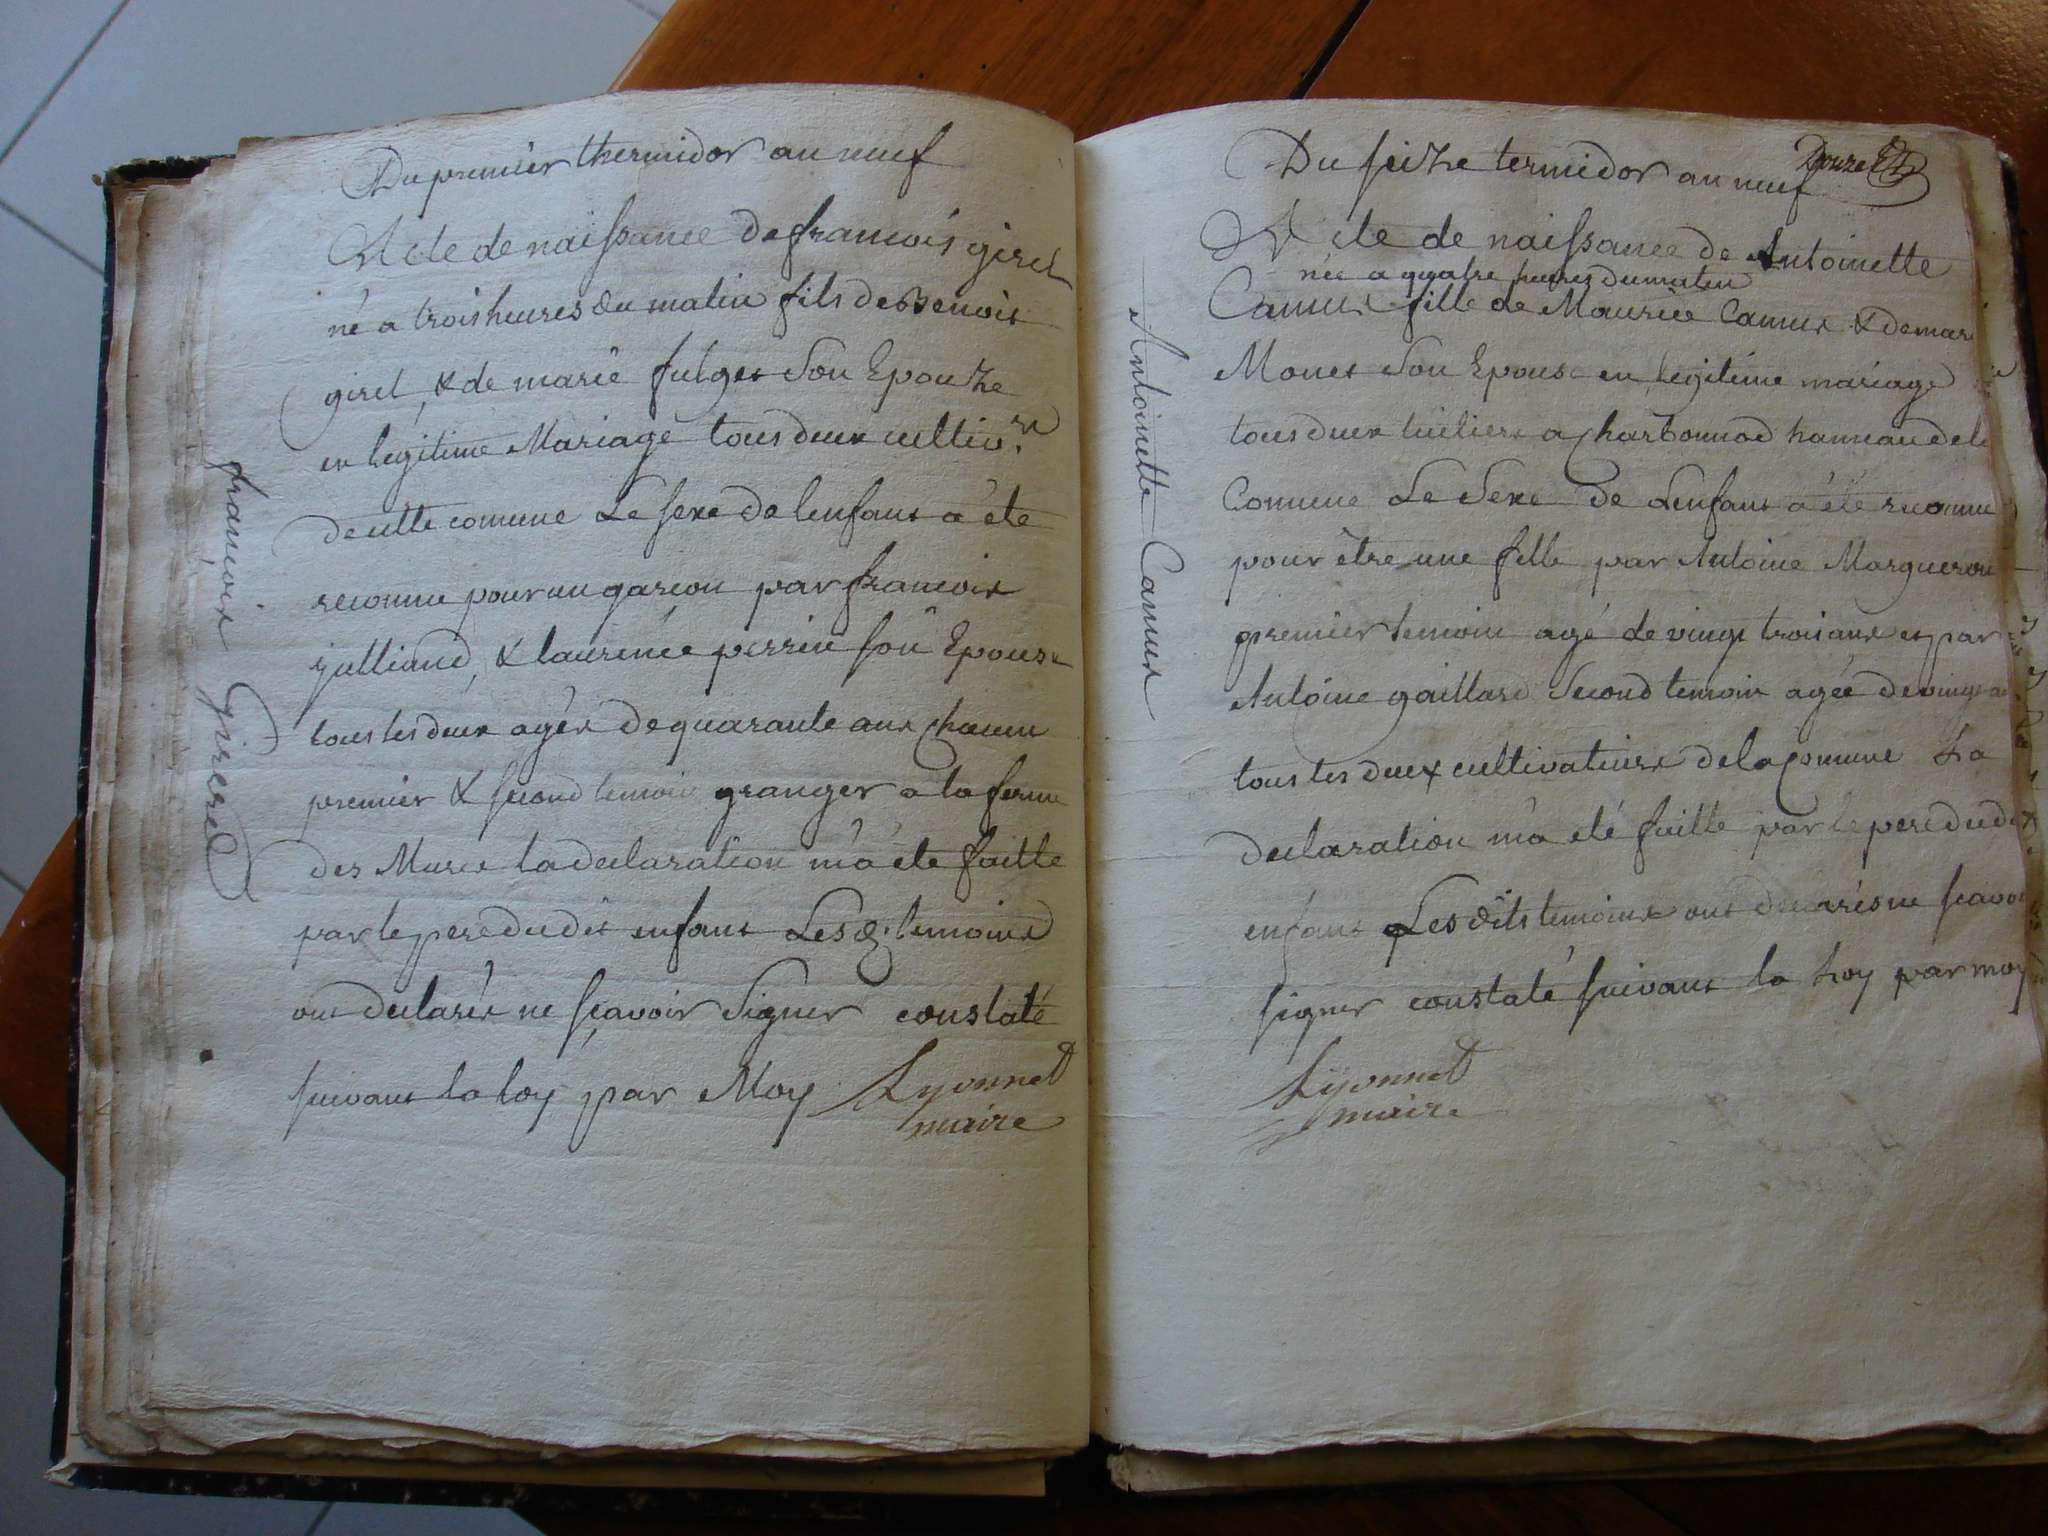 Du premier thermidor an neuf
Acte de naissance de francois girel
né a trois heures du matin fils de Benoit
girel & de marie fulget Son Epouze
en legitime Mariage tous deux cultiv.rs
de cette comune Le sexe de lenfant a été
reconnu pour un garcon par francois
julliand & laurence perrin son Epouse
tous les deux agés de quarante ans chacun
premier & second temoin granger a la ferme
des Mures la declaration m'a été faitte
par le pere du dit enfant Les d. temoins
ont declarés ne sçavoir Signer constaté
suivant la loy par Moy Lyonnet
maire
francois Girerd
Du seize termidor an neuf
Douze
Acte de naissance de Antoinette
née a quatre heures du matin
Camus fille de Maurice Camus & de mar
Monet Son Epouse en legitime mariage
tous deux a charbonnod hameau de la
Comune Le Sexe de Lenfant a été reconnu
pour être une fille par Antoine Margueron
premier temoin agé de vingt trois ans et par
Antoine gaillard Second temoin agée de vingt
tous les deux cultivateurs de la Comune La
declaration m'a été faitte par le pere du d
enfant Les dits temoins ont declarés ne scavoir
signer constaté suivant la Loy par moy
Lyonnet
maire
Antoinette Camus